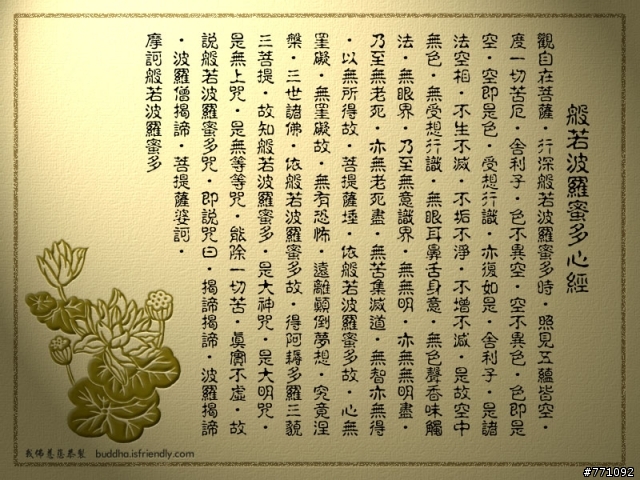 般若波羅蜜多心經
觀自在菩薩．行深般若波羅蜜多時．照見五蘊皆空．
度一切苦厄．舍利子．色不異空．空不異色．色即是
空．空即是色．受想行識．亦復如是．舍利子．是諸
法空相．不生不滅．不垢不淨．不增不減．是故空中
無色．無受想行識．無眼耳鼻舌身意．無色聲香味觸
法．無眼界．乃至無意識界．無無明．亦無無明盡．
乃至無老死．亦無老死盡．無苦集滅道．無智亦無得
．以無所得故．菩提薩埵．依般若波羅蜜多故．心無
罣礙．無罣礙故．無有恐怖．遠離顛倒夢想．究竟涅
槃．三世諸佛．依般若波羅蜜多故．得阿耨多羅三藐
三菩提．故知般若波羅蜜多．是大神咒．是大明咒．
是無上咒．是無等等咒．能除一切苦．真實不虛．故
說般若波羅蜜多咒．即說咒曰．揭諦揭諦．波羅揭諦
．波羅僧揭諦．菩提薩婆訶．
摩訶般若波羅蜜多
我佛慈悲恭製 buddha.isfriendly.com
#771092